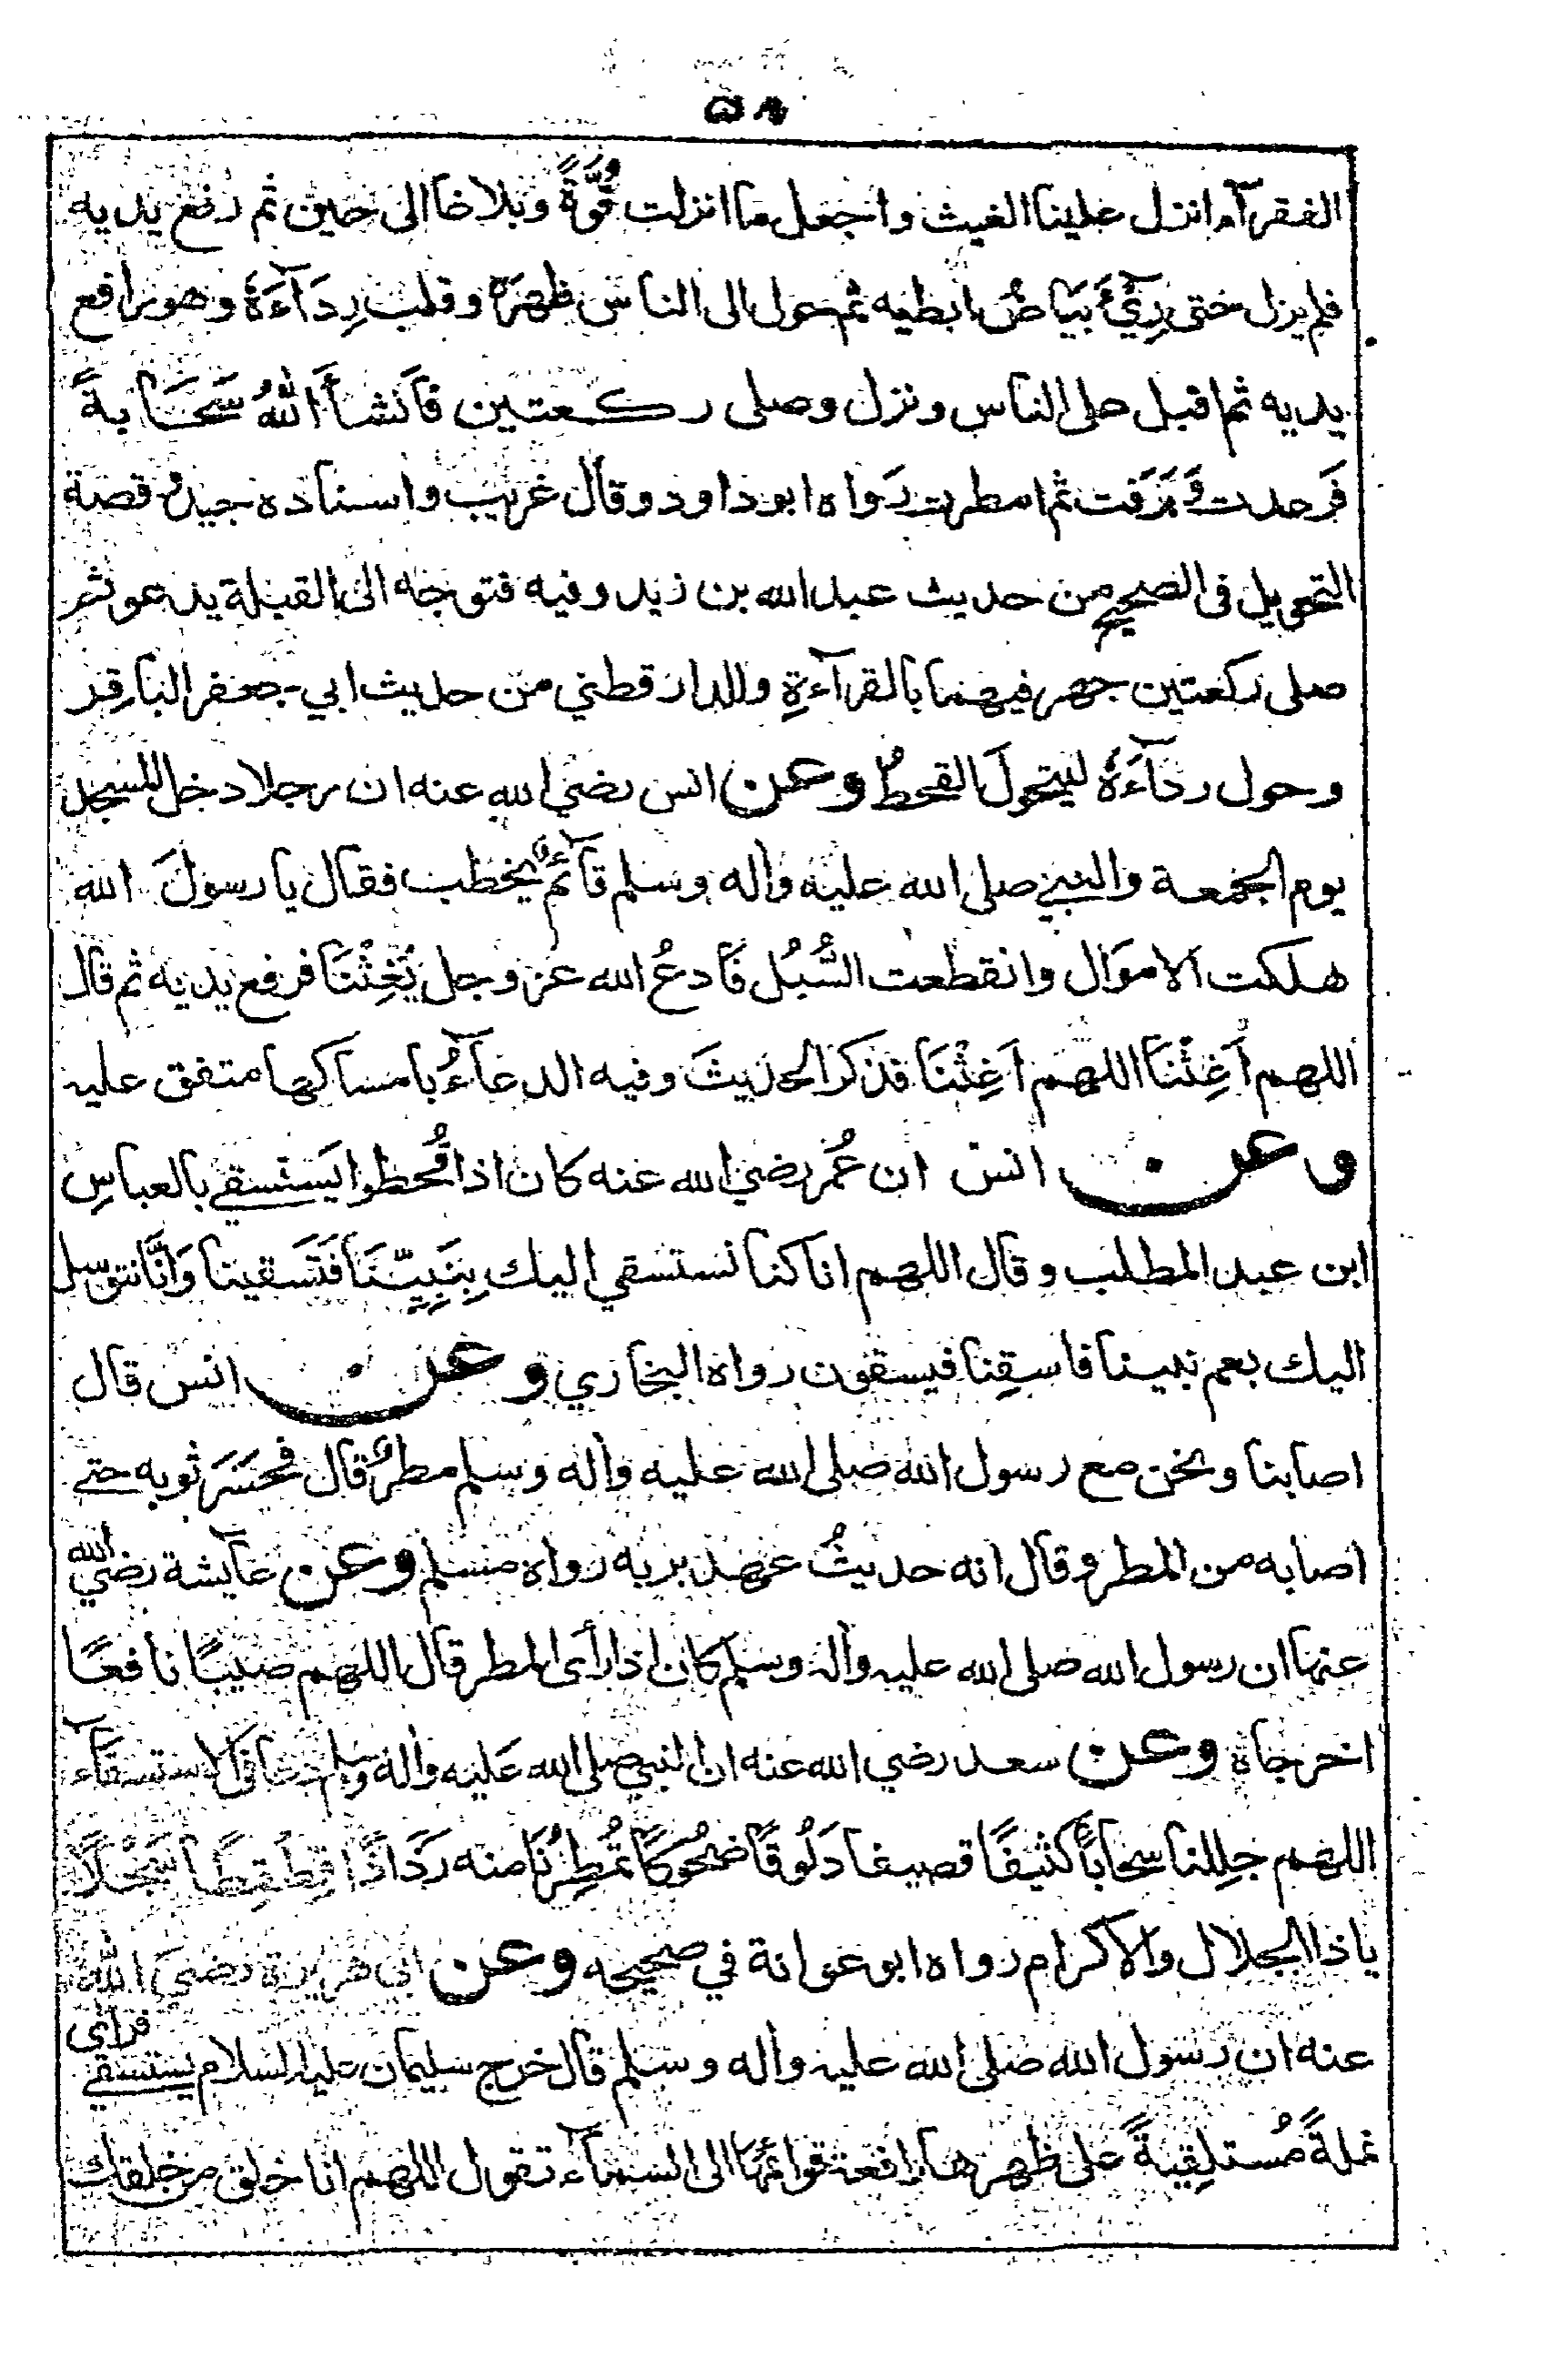 ٥٨
الفقرآء انزل علينا الغيث واجعل ما انزلت قُوَّةً وبلاغا الى حين ثم رفع يديه
فلم يزل حتى رِئُيَ بَيَاضُ ابطيه ثم حول الى الناس ظهرَهُ وقلب رِدَآءَهُ وهو رافع
يديه ثم اقبل على الناس ونزل وصلى ركعتين فأَنشأَ اللهُ سَحَابةً
فَرعدت وَبَرَقت ثم امطرت رَواه ابو داود وقال غريب واسناده جيد وقصة
التحويل في الصحيح من حديث عبد الله بن زيد وفيه فتوجه الى القبلة يدعو ثم
صلى ركعتين جهر فيهما بالقرآءةِ وللدارقطني من حديث ابي جعفر الباقِر
وحول ردآءَهُ ليتحولَ القحطُ وعن انس رضي الله عنه ان رجلا دخل المسجد
يوم الجمعة والنبي صلى الله عليه وآله وسلم قآئمٌ يخطب فقال يا رسولَ الله
هلكت الاموَال وانقطعت السُّبُل فَادعُ الله عز وجل يُغِثْنَا فرفع يديه ثم قال
اللهم أَغِثْنَا اللهم اَغِثْنَا فذكر الحديثَ وفيه الدعآءُ بامساكها متفق عليه
وعن انس ان عُمر رضي الله عنه كان اذا قُحطوا يَستسقي بالعباسِ
ابن عبد المطلب وقال اللهم انا كنا نستسقي اليك بِنَبِيِّنَا فَتَسقينا وَانَّا نتوسل
اليك بعم نبينا فاسقِنا فيسقون رواه البخاري وعن انس قال
اصابنا ونحن مع رسول الله صلى الله عليه وآله وسلم مطرٌ قال فحسَرَ ثوبه حتى
اصابه من المطر وقال انه حديثُ عهد بربه رواه مسلم وعن عآيشة رضي الله
عنها ان رسول الله صلى الله عليه وآله وسلم كان اذا رأى المطر قال اللهم صيّبًا نافعًا
اخرجاهُ وعن سعد رضي الله عنه ان النبي صلى الله عليه وآله وسلم دعا في الاستسقآء
اللهم جلِلنا سحابًا كثيفًا قصيفا دَلُوقًا ضحُوكًا تُمطِرُنَا منه رَذَاذًا قِطْقِطًا سَجْلًا
ياذا الجلال والاكرام رواه ابو عوانة في صحيحه وعن ابي هريرة رضيَ اللهُ
عنه ان رسول الله صلى الله عليه وآله وسلم قال خرج سليمان عليه السلام يستسقي فرأى
نملةً مُستلقِيةً على ظهرها رافعة قوائمَها الى السمآء تقول اللهم انا خلق من خلقك